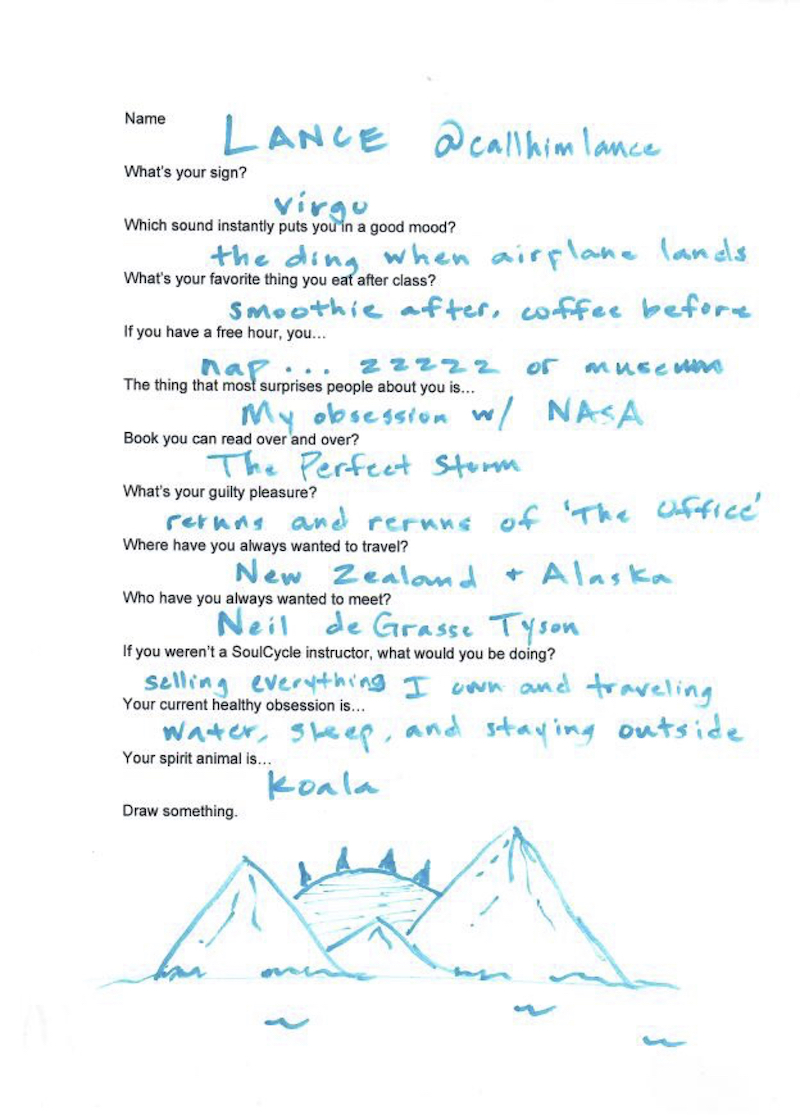 Name
LANCE @callhimlance
What's your sign?
virgo
Which sound instantly puts you in a good mood?
the ding when airplane lands
What's your favorite thing you eat after class?
smoothie after, coffee before
If you have a free hour, you...
nap... zzzzz or museum
The thing that most surprises people about you is...
My obsession w/ NASA
Book you can read over and over?
The Perfect Storm
What's your guilty pleasure?
reruns and reruns of 'The Office'
Where have you always wanted to travel?
New Zealand + Alaska
Who have you always wanted to meet?
Neil de Grasse Tyson
If you weren't a SoulCycle instructor, what would you be doing?
selling everything I own and traveling
Your current healthy obsession is...
water, sleep, and staying outside
Your spirit animal is...
koala
Draw something.